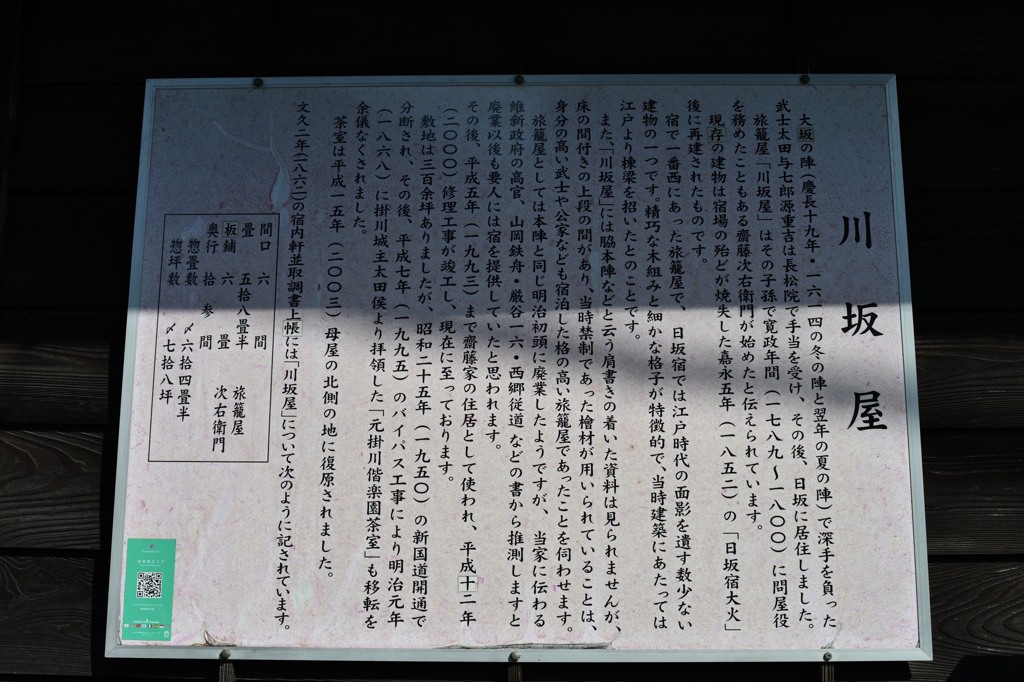 川坂屋
大坂の陣(慶長十九年・一六一四の冬の陣と翌年の夏の陣)で深手を負った
武士太田与七郎源重吉は長松院で手当を受け、その後、日坂に居住しました。
旅籠屋「川坂屋」はその子孫で寛政年間(一七八九～一八〇〇)に問屋役
を務めたこともある齋藤次右衛門が始めたと伝えられています。
現存の建物は宿場の殆どが焼失した嘉永五年(一八五二)の「日坂宿大火」
後に再建されたものです。
宿で一番西にあった旅籠屋で、日坂宿では江戸時代の面影を遺す数少ない
建物の一つです。精巧な木組みと細かな格子が特徴的で、当時建築にあたっては
江戸より棟梁を招いたとのことです。
また、「川坂屋」には脇本陣などと云う肩書きの着いた資料は見られませんが、
床の間付きの上段の間があり、当時禁制であった檜材が用いられていることは、
身分の高い武士や公家なども宿泊した格の高い旅籠屋であったことを伺わせます。
旅籠屋としては本陣と同じ明治初頭に廃業したようですが、当家に伝わる
維新政府の高官、山岡鉄舟・巌谷一六・西郷従道などの書から推測しますと
廃業以後も要人には宿を提供していたと思われます。
その後、平成五年(一九九三)まで齋藤家の住居として使われ、平成十二年
(二〇〇〇)修理工事が竣工し、現在に至っております。
敷地は三百余坪ありましたが、昭和二十五年(一九五〇)の新国道開通で
分断され、その後、平成七年(一九九五)のバイパス工事により明治元年
(一八六八)に掛川城主太田侯より拝領した「元掛川偕楽園茶室」も移転を
余儀なくされました。
茶室は平成一五年(二〇〇三)母屋の北側の地に復原されました。
文久二年(一八六二)の宿内軒並取調書上帳には「川坂屋」について次のように記されています。
間口 六 間 旅籠屋
畳 五拾八畳半 次右衛門
板鋪 六 畳
奥行 拾 参 間
惣畳数 〆六拾四畳半
惣坪数 〆七拾八坪